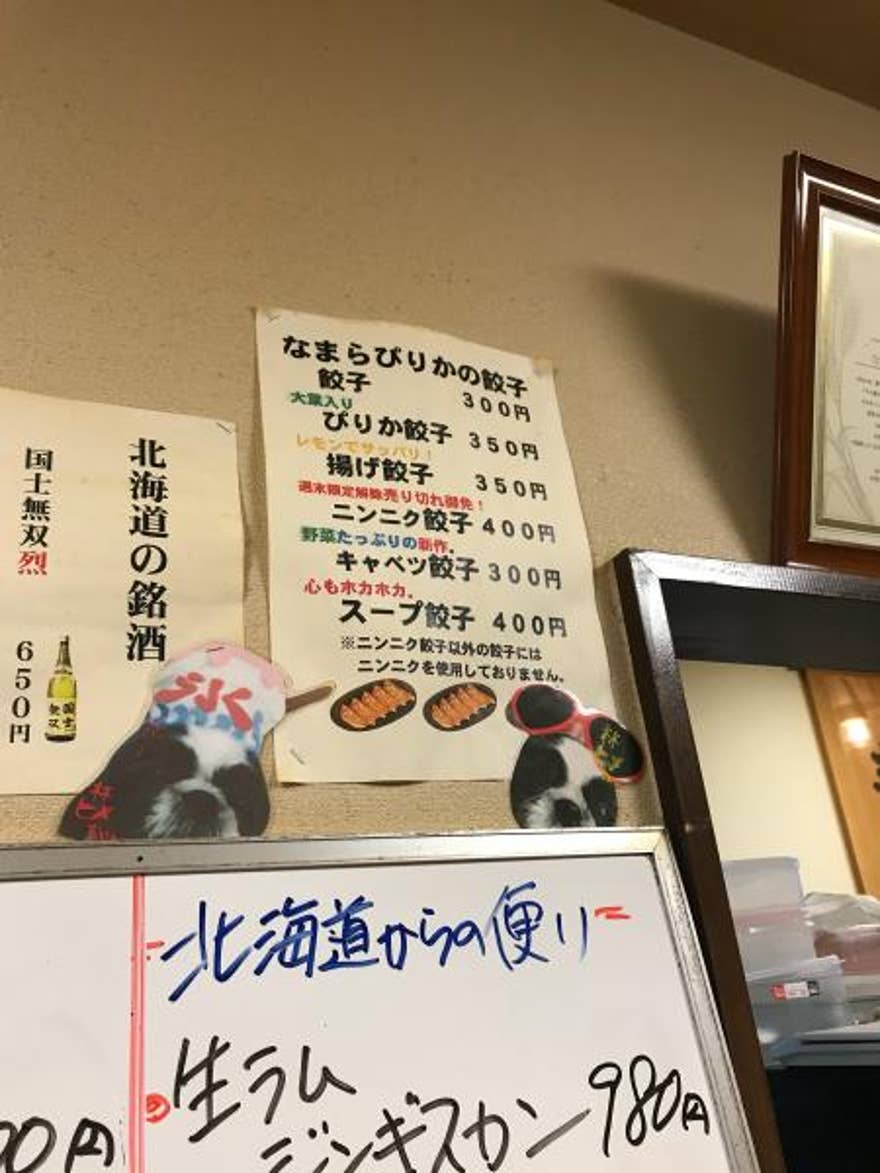 なまらぴりかの餃子
餃子 300円
大葉入り
ぴりか餃子 350円
レモンでサッパリ！
揚げ餃子 350円
週末限定解除売り切れ御免！
ニンニク餃子 400円
野菜たっぷりの新作。
キャベツ餃子 300円
心もホカホカ。
スープ餃子 400円
※ニンニク餃子以外の餃子には
ニンニクを使用しておりません。
北海道の銘酒
国士無双烈
650円
国士
無双
氷
北海道からの便り
生ラム
ジンギスカン 980円
00円